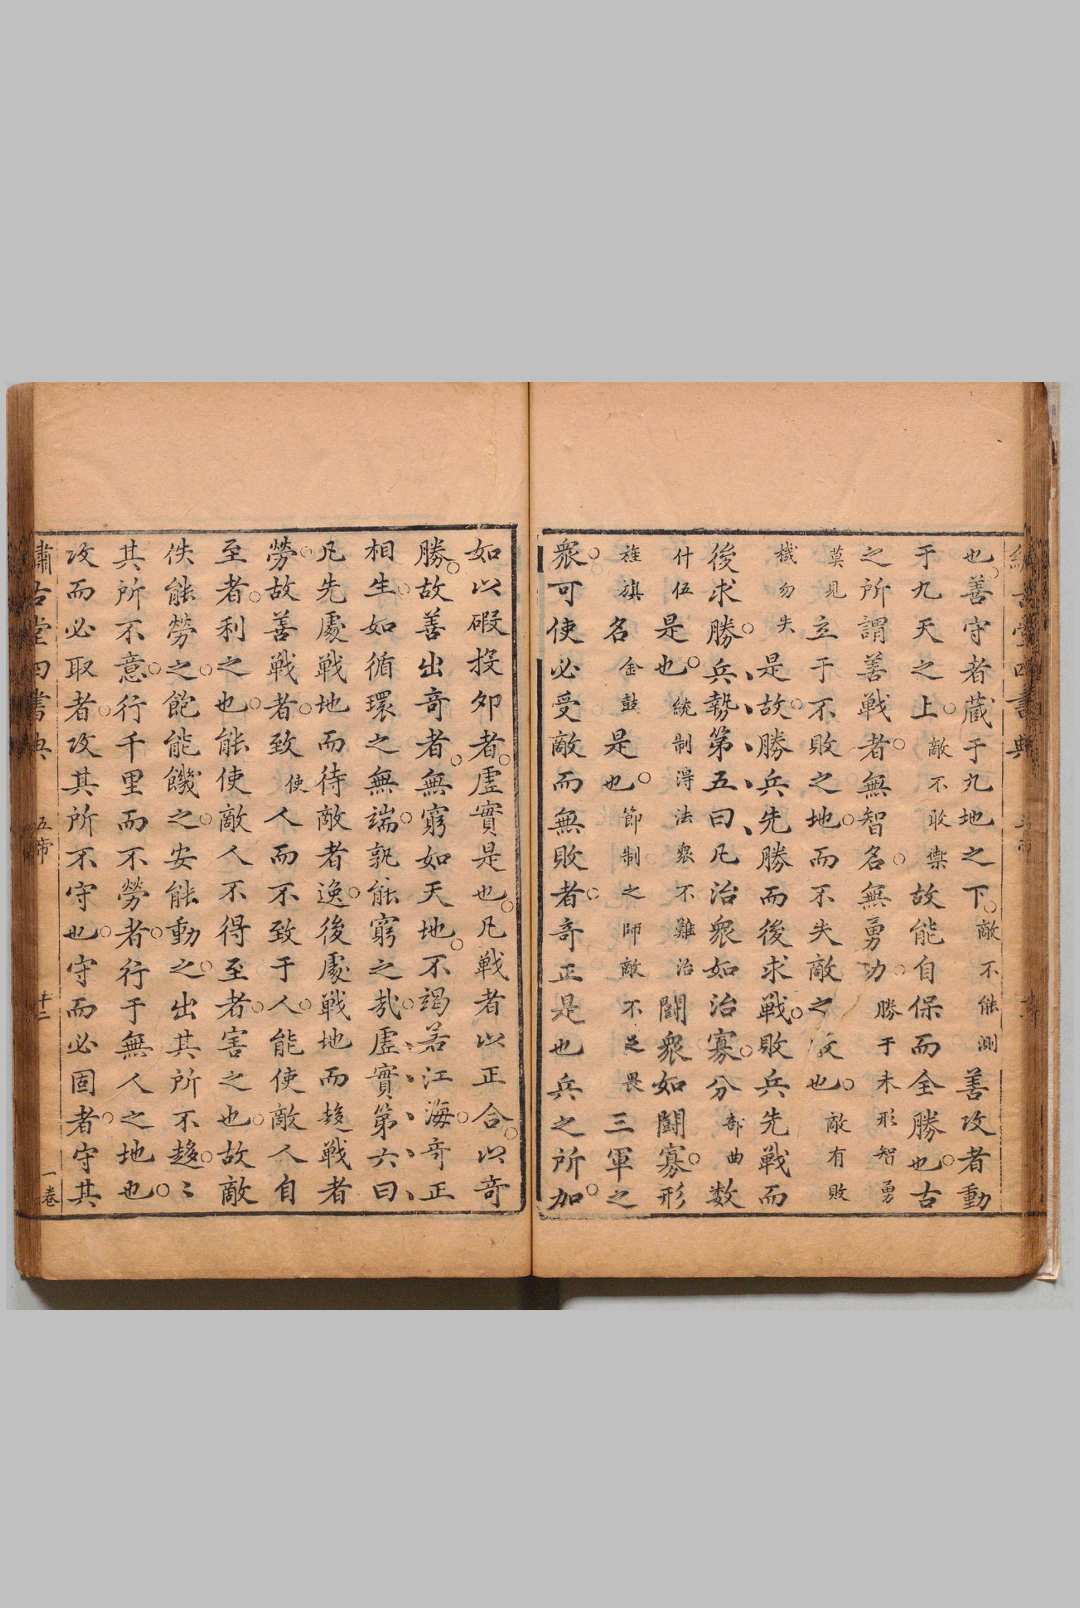 也善守者藏于九地之下敵不能測善攻者動
于九天之上敵不敢禦故能自保而全勝也古
之所謂善戰者無智名無勇功勝于未形智勇
莫見立于不敗之地而不失敵之也敵有敗
樾勿失是故勝兵先勝而後求戰敗兵先戰而
後求勝兵勢第五曰凡治眾如治寡分部曲數
什伍是也統制得法眾不難治鬪眾如鬪寡形
旌旗名金鼓是也節制之師敵不足畏三軍之
眾可使必受敵而無敗者奇正是也兵之所加
如以碬投卵者虛實是也凡戰者以正合以奇
勝故善出奇者無窮如天地不竭若江海奇正
相生如循環之無端孰能窮之哉虛實第六曰
凡先處戰地而待敵者逸後處戰地而趍戰者
勞故善戰者致使人而不致于人能使敵人自
至者利之也能使敵人不得至者害之也故敵
佚能勞之飽能饑之安能動之出其所不趍〻
其所不意行千里而不勞者行于無人之地也
攻而必取者攻其所不守也守而必固者守其
古堂四書典 五帝 十二 一卷